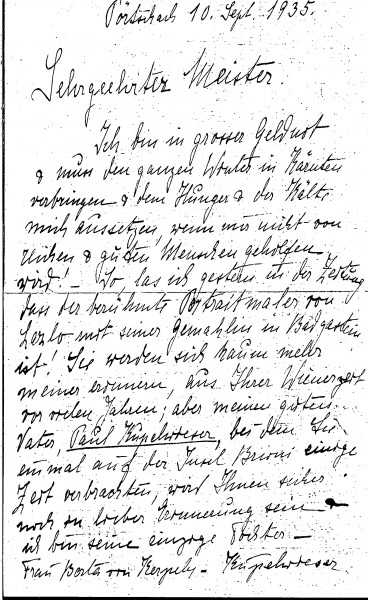 Pörtschach 10. Sept. 1935.
Sehrgeehrter Meister.
Ich bin in grosser Geldnot
& muss den ganzen Winter in Kärnten
verbringen & dem Hunger & der Kälte
mich aussetzen, wenn mir nicht von
reichen & guten Menschen geholfen
wird! – So las ich gestern in der Zeitung
dass der berühmte Portraitmaler von
Lazlo mit seiner Gemahlin in Badgastein
ist! Sie werden sich kaum mehr
meiner erinnern, aus Ihrer Wienerzeit
vor vielen Jahren; aber meinen guten
Vater, Paul Kupelwieser, bei dem Sie
einmal auf der Insel Brioni einige
Zeit verbrachten, wird Ihnen sicher
noch in lieber Erinnerung sein &
ich bin seine einzige Tochter –
Frau Berta von Kerpely – Kupelwieser